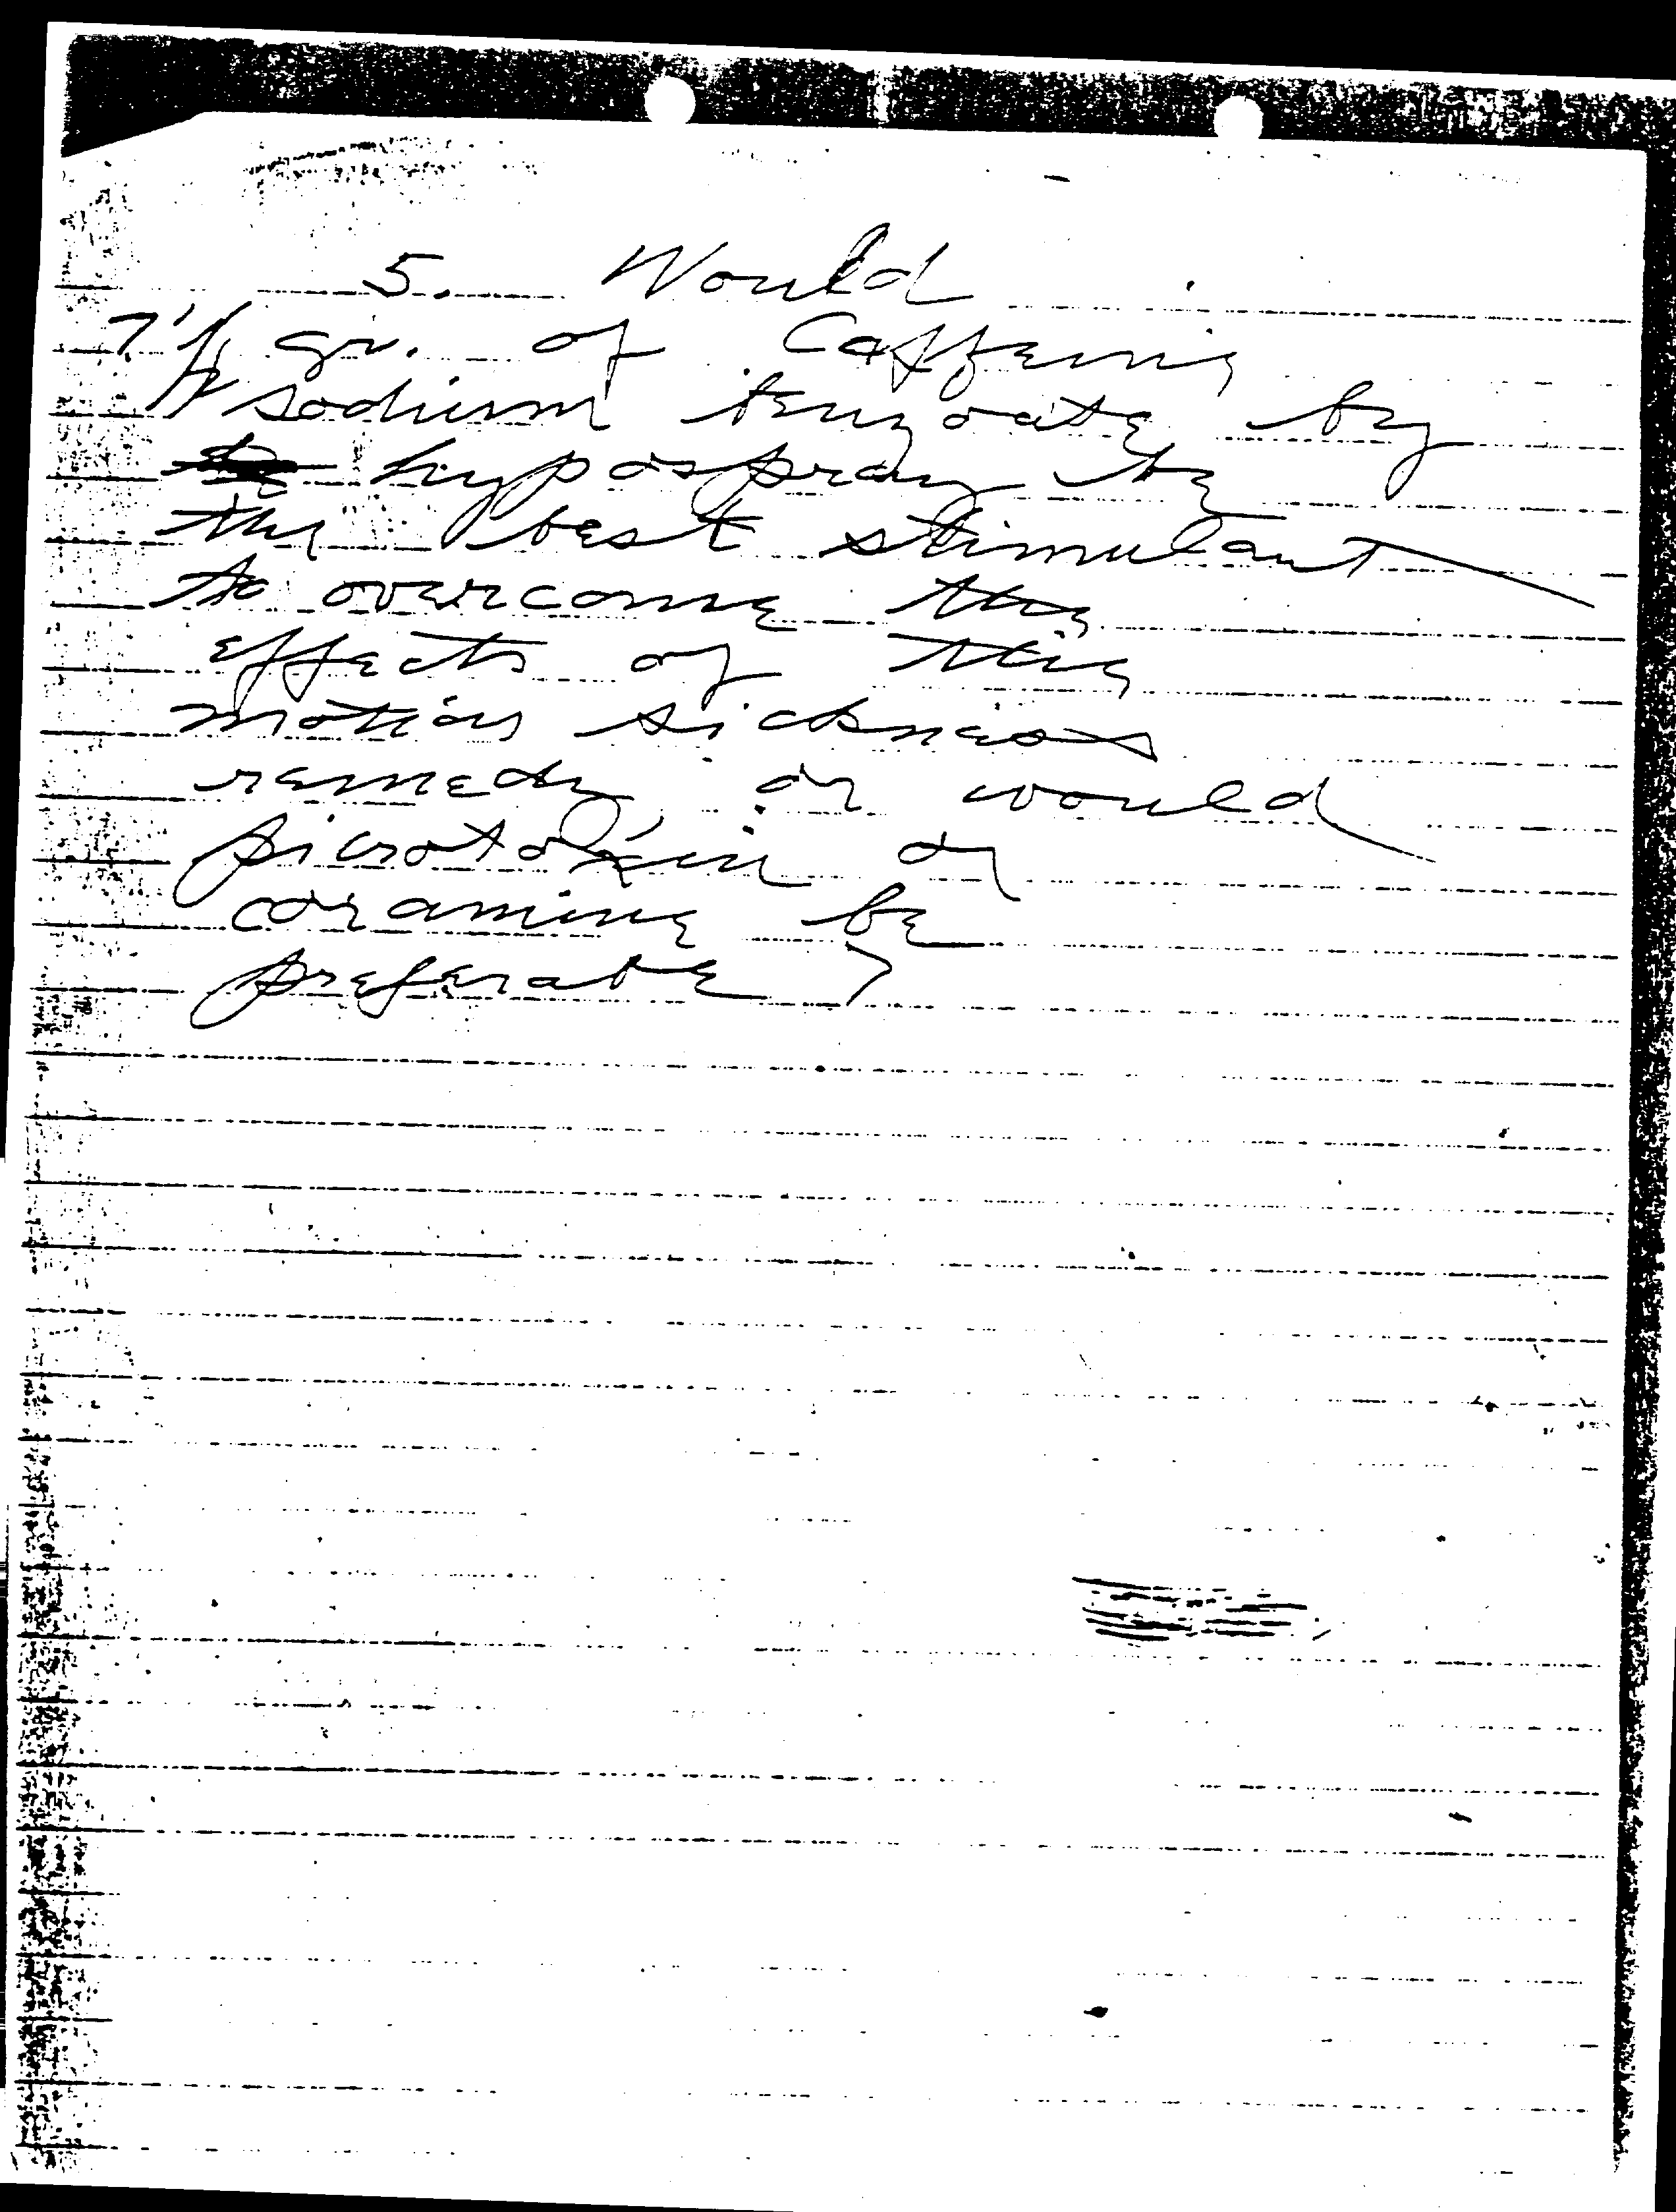 5. Would
7 1/2 gr. of Caffeine
sodium benzoate by
hypospray be
the best stimulant
to overcome the
effects of this
motion sickness
remedy, or would
picrotoxin or
coramine be
preferabe?